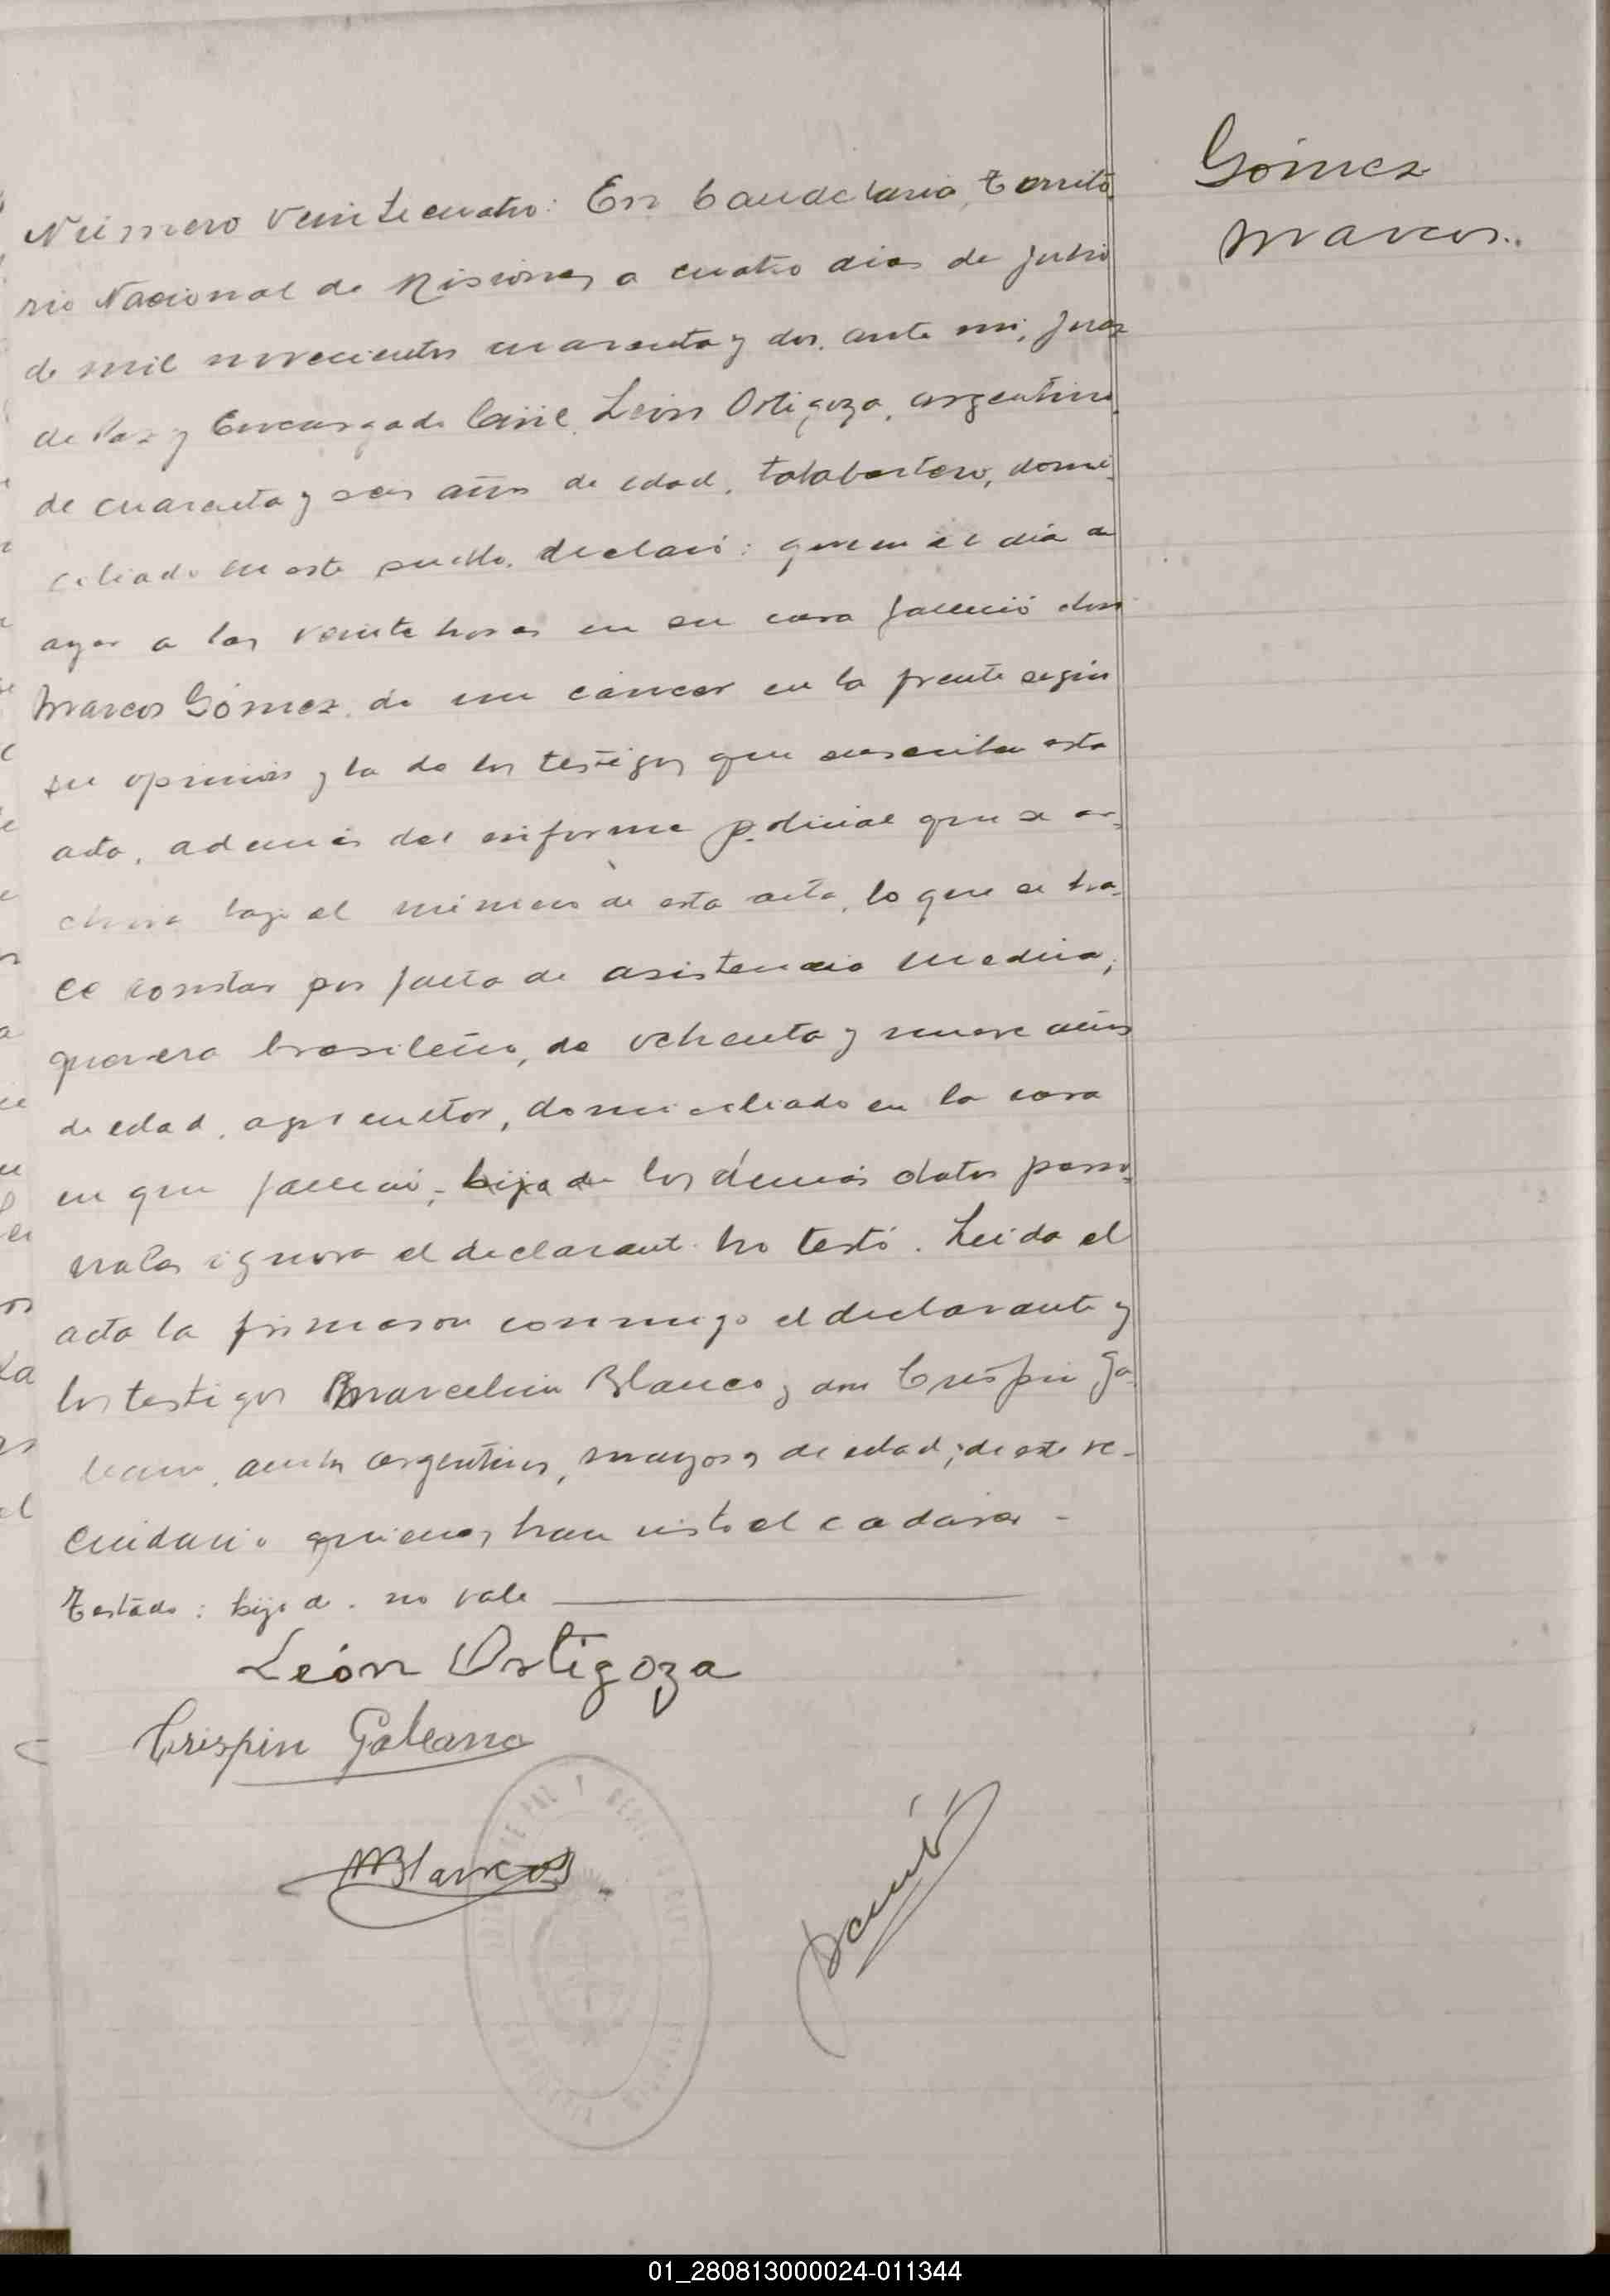 Gómez
Marcos.
Número veinticuatro: En Candelaria, Territo
rio Nacional de Misiones, a cuatro dias de julio
de mil novecientos cuarenta y dos, ante mi, Juez
de Paz y Encargado Civil, León Ortigoza, argentino
de cuarenta y seis años de edad, talabartero, domi
ciliado en este pueblo, declaró: que en el día de
ayer a las veinte horas en su casa falleció don
Marcos Gómez, de un cáncer en la frente según
su opinión y la de los testigos que suscriben esta
acta, además del informe policial que se ar-
chiva bajo el número de esta acta, lo que se ha-
ce constar por falta de asistencia medica;
que era brasileño, de ochenta y nueve años
de edad, agricultor, domiciliado en la casa
en que falleció, hijo de los demás datos perso-
nales ignora el declarante. No testó. Leida el
acta la firmaron conmigo el declarante y
los testigos Marcelino Blanco y don Crispin Ga-
leano, ambos argentinos, mayores de edad, de este ve-
cindario quienes han visto el cadaver -
Testado: hijo de. no vale
León Ortigoza
Crispin Galeano
MBlanco
01_280813000024-011344